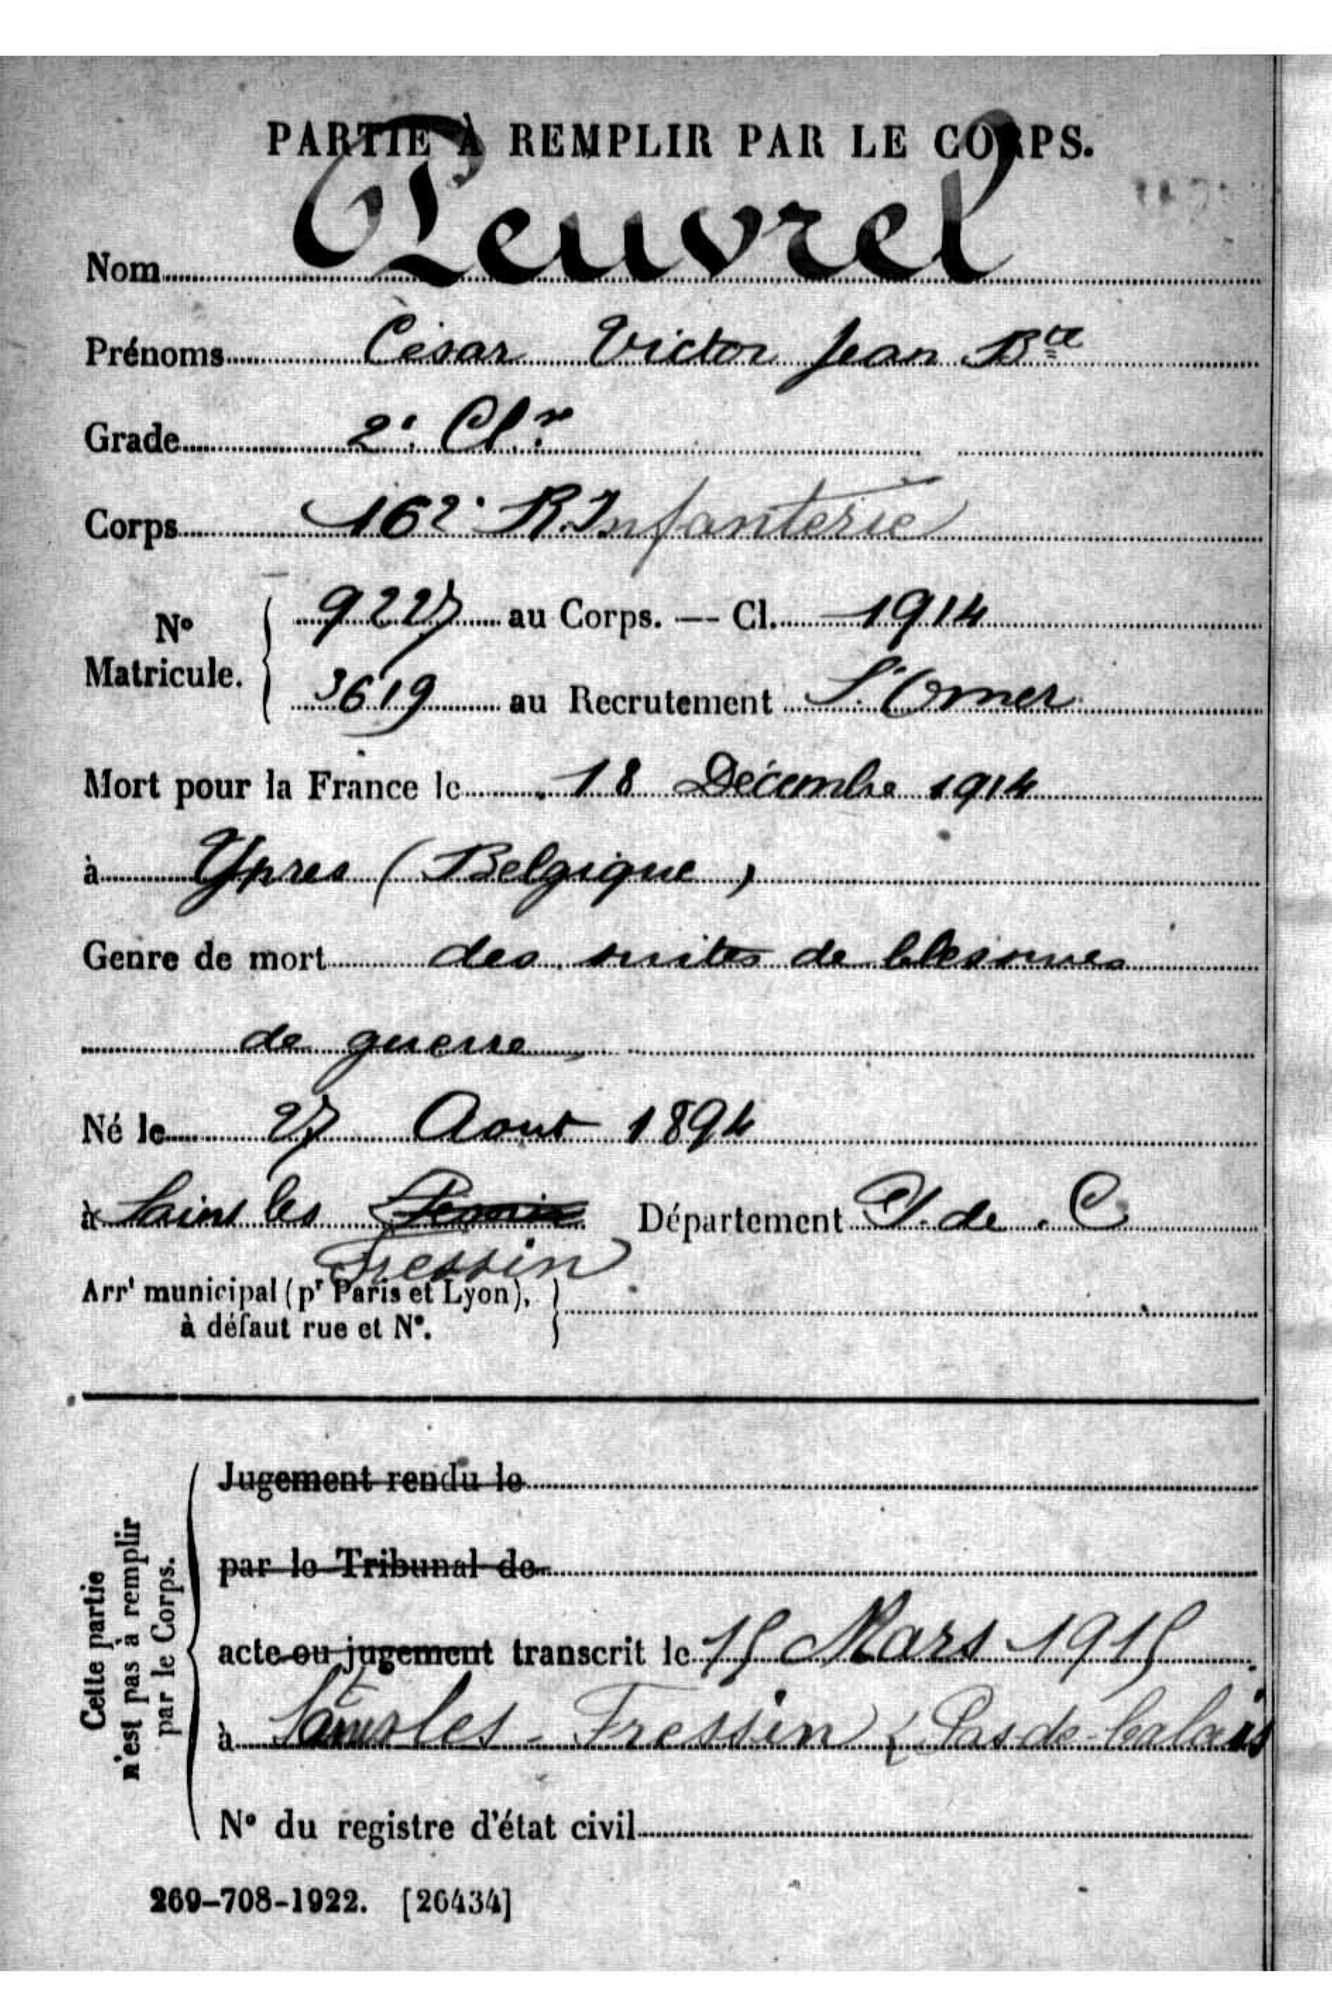 PARTIE À REMPLIR PAR LE CORPS.
Nom Peuvrel
Prénoms César Victor Jean Bte
Grade 2e Cl.
Corps 162e R. Infanterie
N° Matricule. 9227 au Corps. — Cl. 1914
3619 au Recrutement St Omer
Mort pour la France le 18 Décembre 1914
à Ypres (Belgique)
Genre de mort des suites de blessures
de guerre
Né le 27 Aout 1894
à Sains les Département P. de C
Fressin
Arrt municipal (pr Paris et Lyon),
à défaut rue et N°.
Cette partie
n'est pas à remplir
par le Corps.
Jugement rendu le
par le Tribunal de
acte ou jugement transcrit le 15 Mars 1915
à Sains les - Fressin (Pas de-Calais
N° du registre d'état civil
269-708-1922. [26434]